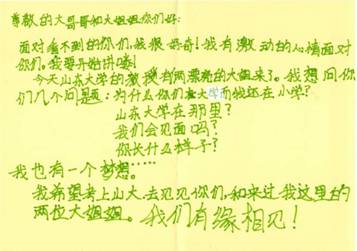 尊敬的大哥哥和大姐姐你们好:
面对看不到的你们,我很好奇!我有激动的心情面对
你们。我要开始讲喽!
今天山东大学的教授有两漂亮的大姐来了。我想问你
们几个问题:为什么你们在大学而我还在小学?
山东大学在那里?
我们会见面吗?
你长什么样子?
我也有一个梦想……
我希望考上山大,去见见你们,和来过我这里的
两位大姐姐。我们有缘相见!